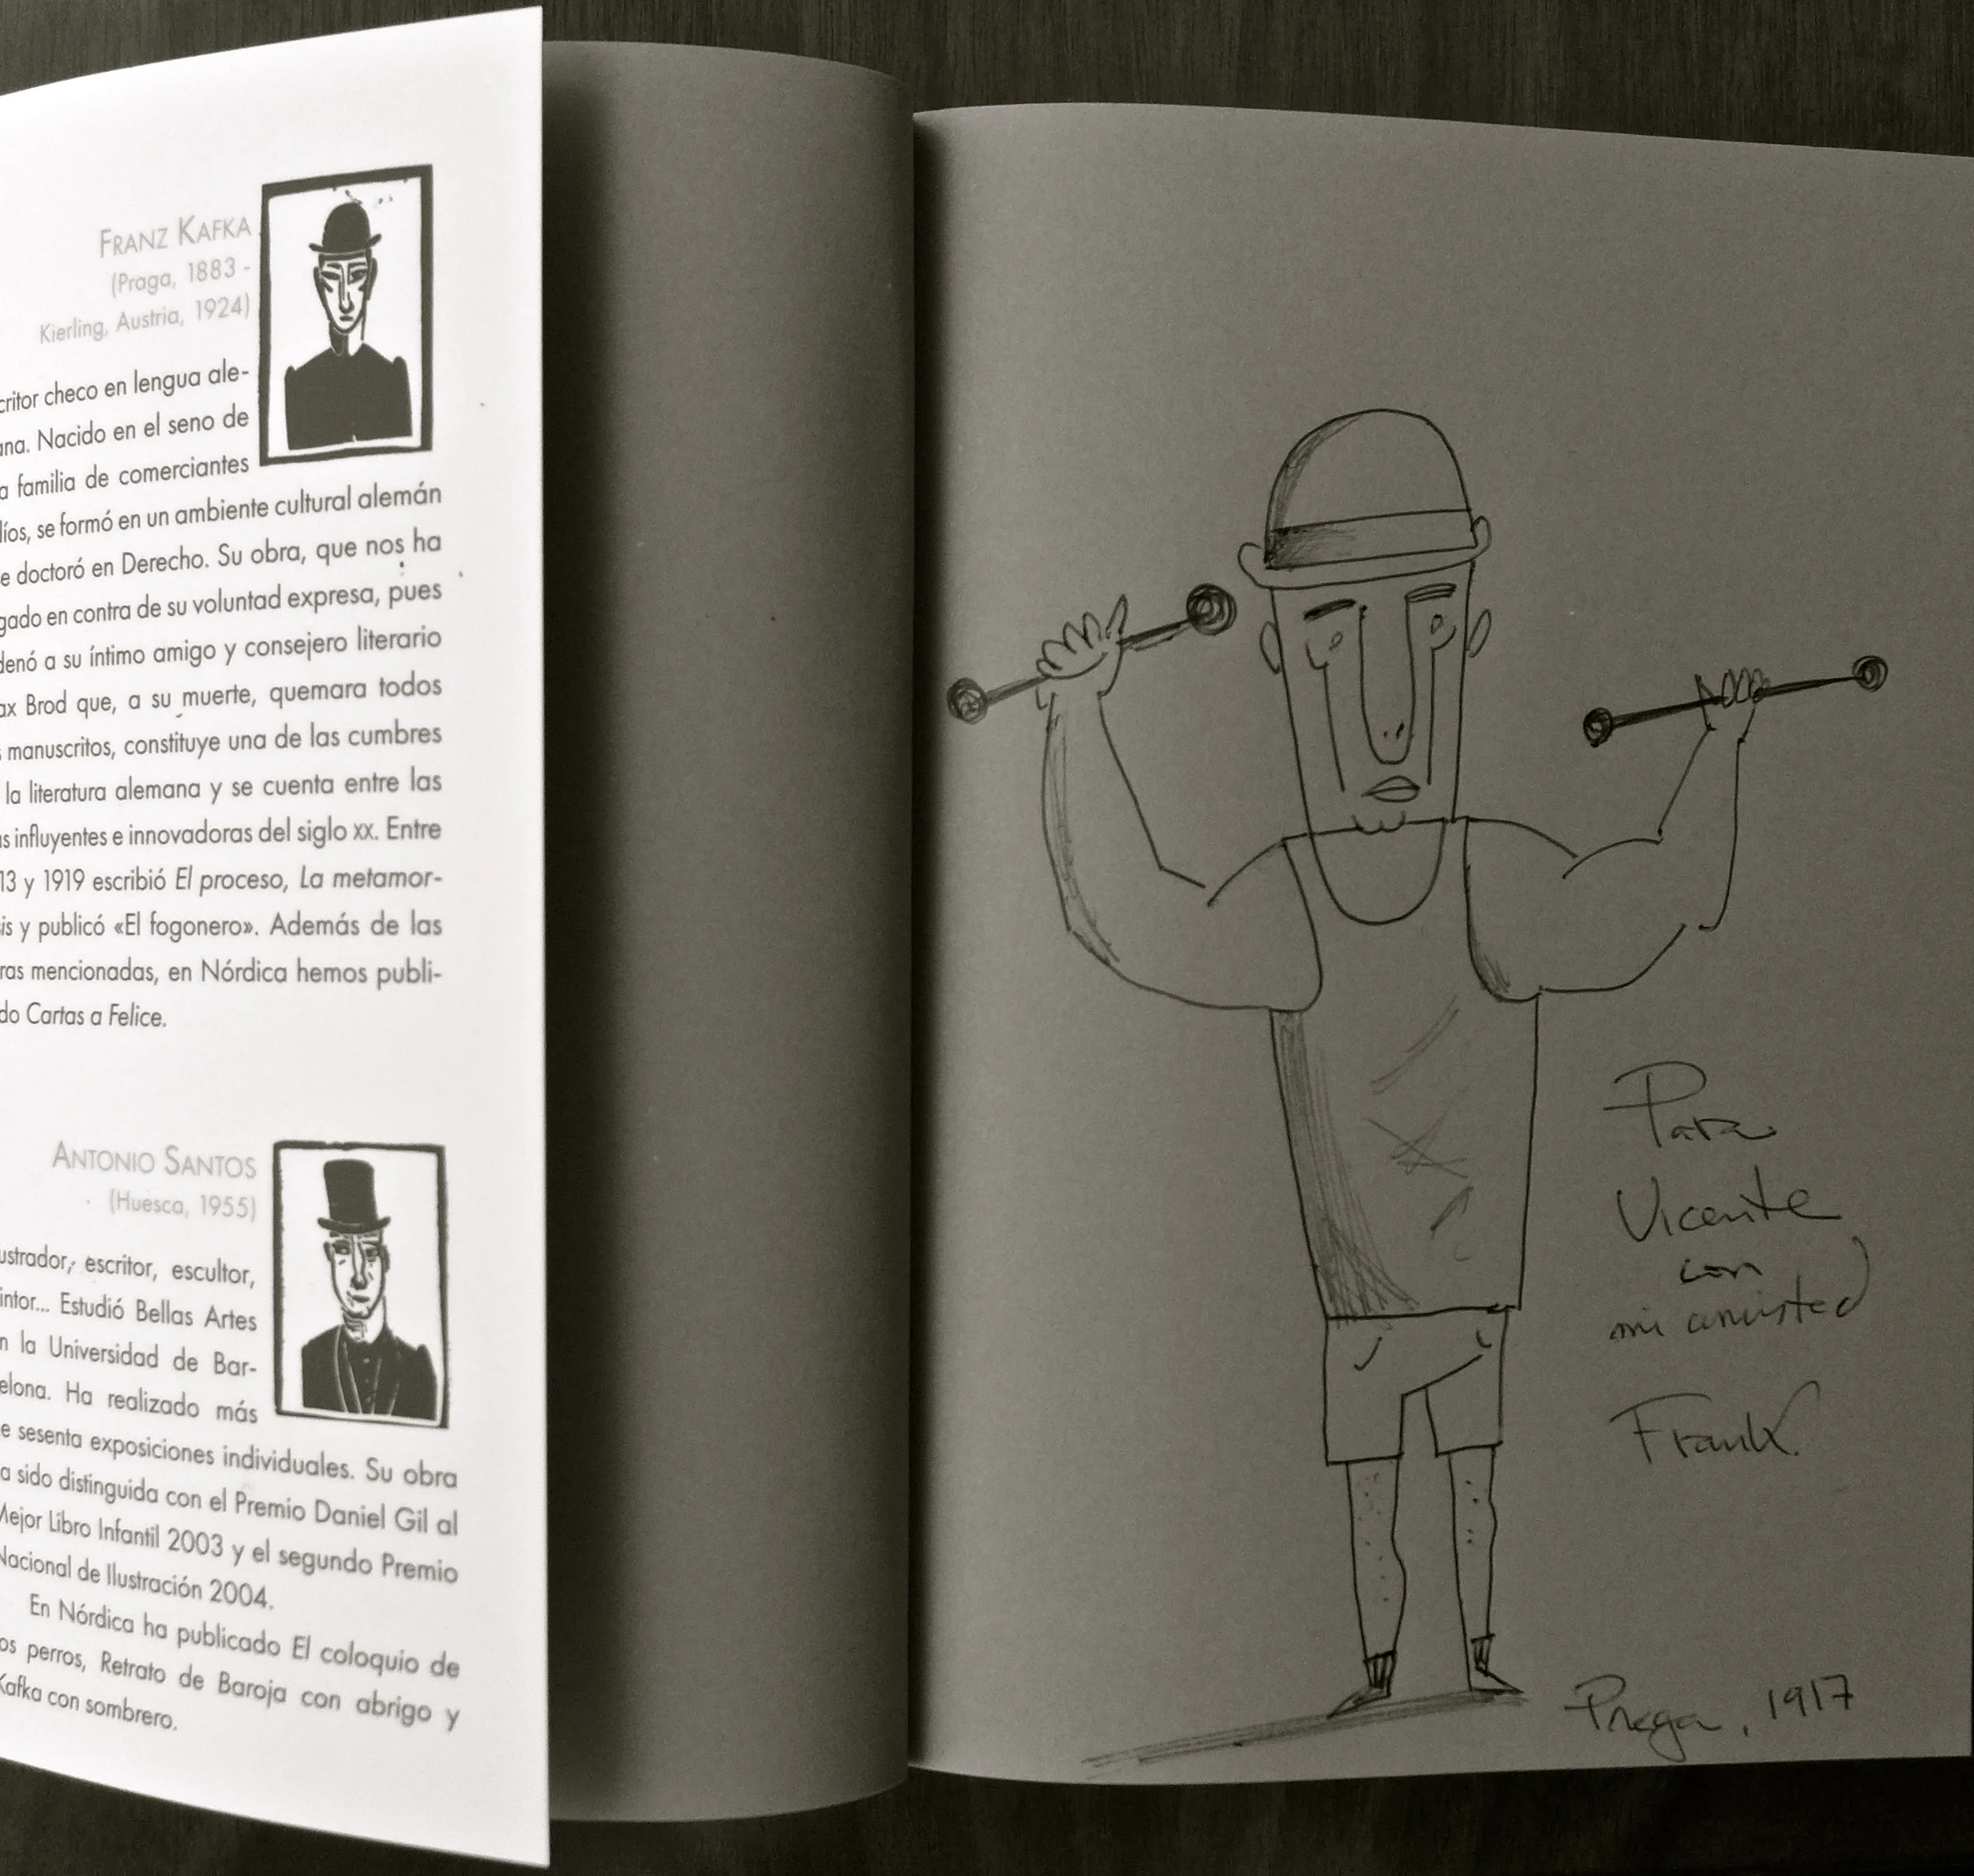 FRANZ KAFKA
(Praga, 1883 -
Kierling, Austria, 1924)
critor checo en lengua ale-
ana. Nacido en el seno de
a familia de comerciantes
díos, se formó en un ambiente cultural alemán
e doctoró en Derecho. Su obra, que nos ha
gado en contra de su voluntad expresa, pues
denó a su íntimo amigo y consejero literario
ax Brod que, a su muerte, quemara todos
s manuscritos, constituye una de las cumbres
la literatura alemana y se cuenta entre las
as influyentes e innovadoras del siglo XX. Entre
13 y 1919 escribió El proceso, La metamor-
sis y publicó «El fogonero». Además de las
ras mencionadas, en Nórdica hemos publi-
do Cartas a Felice.
ANTONIO SANTOS
(Huesca, 1955)
ustrador, escritor, escultor,
intor... Estudió Bellas Artes
n la Universidad de Bar-
elona. Ha realizado más
e sesenta exposiciones individuales. Su obra
a sido distinguida con el Premio Daniel Gil al
Mejor Libro Infantil 2003 y el segundo Premio
Nacional de Ilustración 2004.
En Nórdica ha publicado El coloquio de
os perros, Retrato de Baroja con abrigo y
Kafka con sombrero.
Para
Vicente
con
mi amistad
Frank.
Praga, 1917